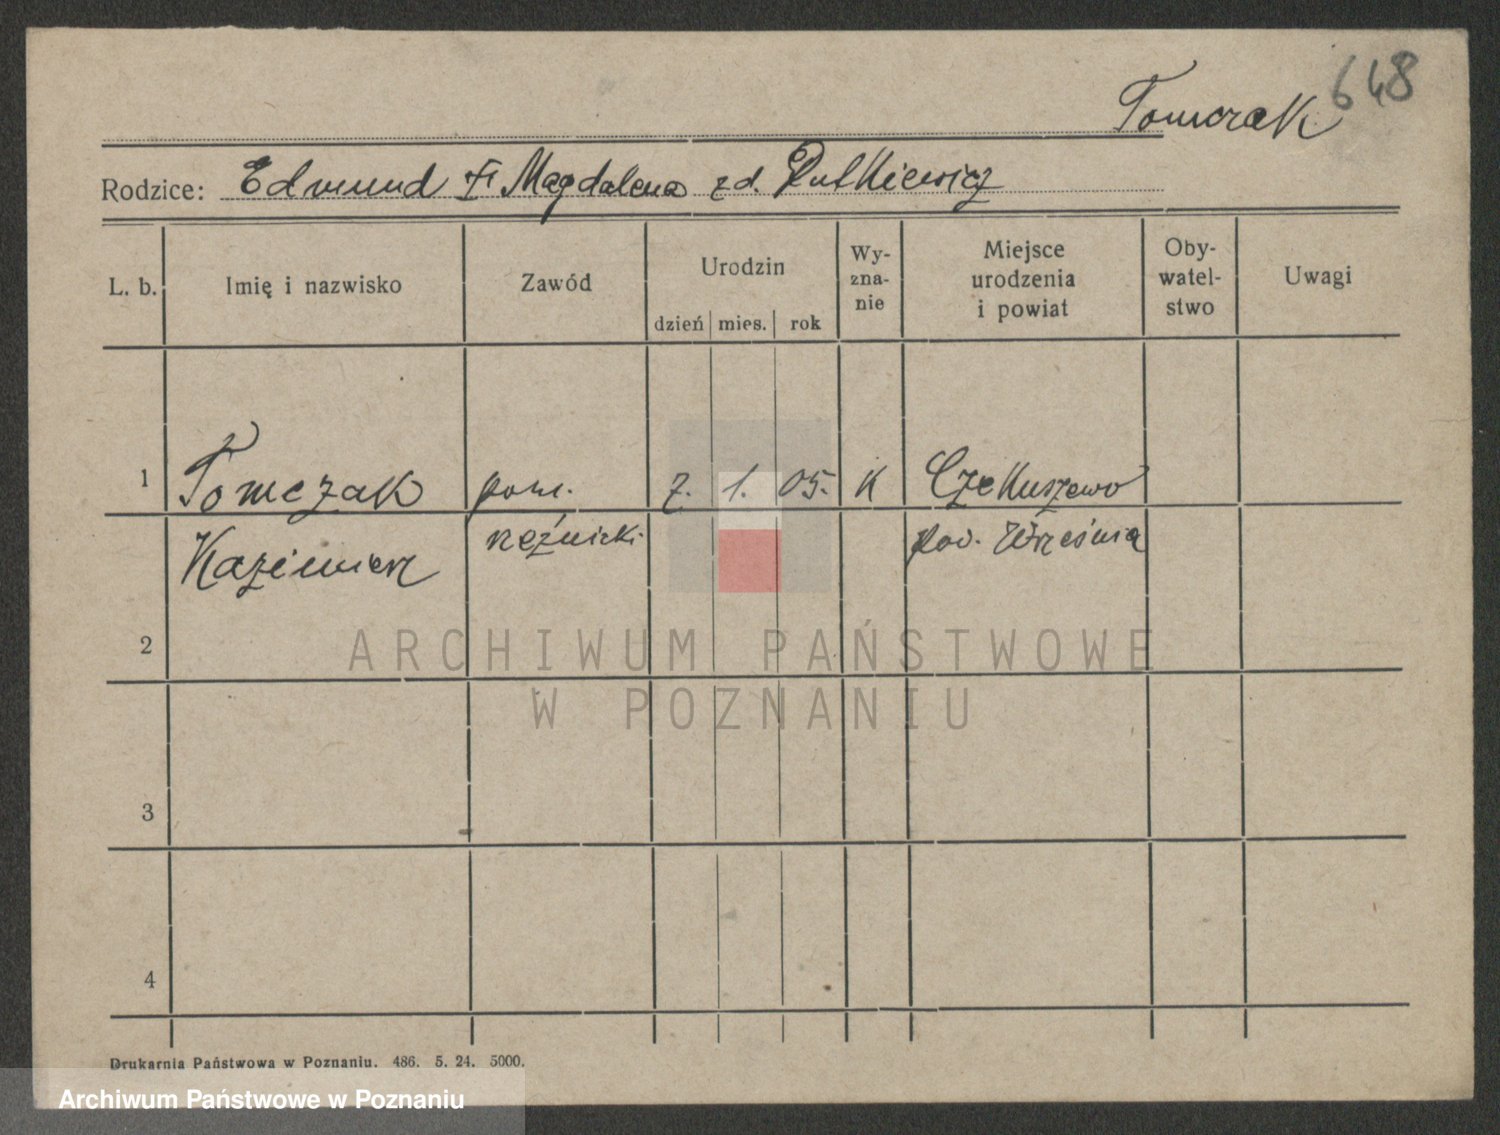 648
Tomczak
Rodzice: Edmund i Magdalena zd. Rutkiewicz
L. b. Imię i nazwisko Zawód Urodzin dzień mies. rok Wy-zna-nie Miejsce urodzenia i powiat Oby-watel-stwo Uwagi
1 Tomczak pom. 7. 1. 05. K Czekuszewo
Kazimierz rzeźnicki pow. Września
2
ARCHIWUM PAŃSTWOWE
W POZNANIU
3
4
Drukarnia Państwowa w Poznaniu. 486. 5. 24. 5000.
Archiwum Państwowe w Poznaniu